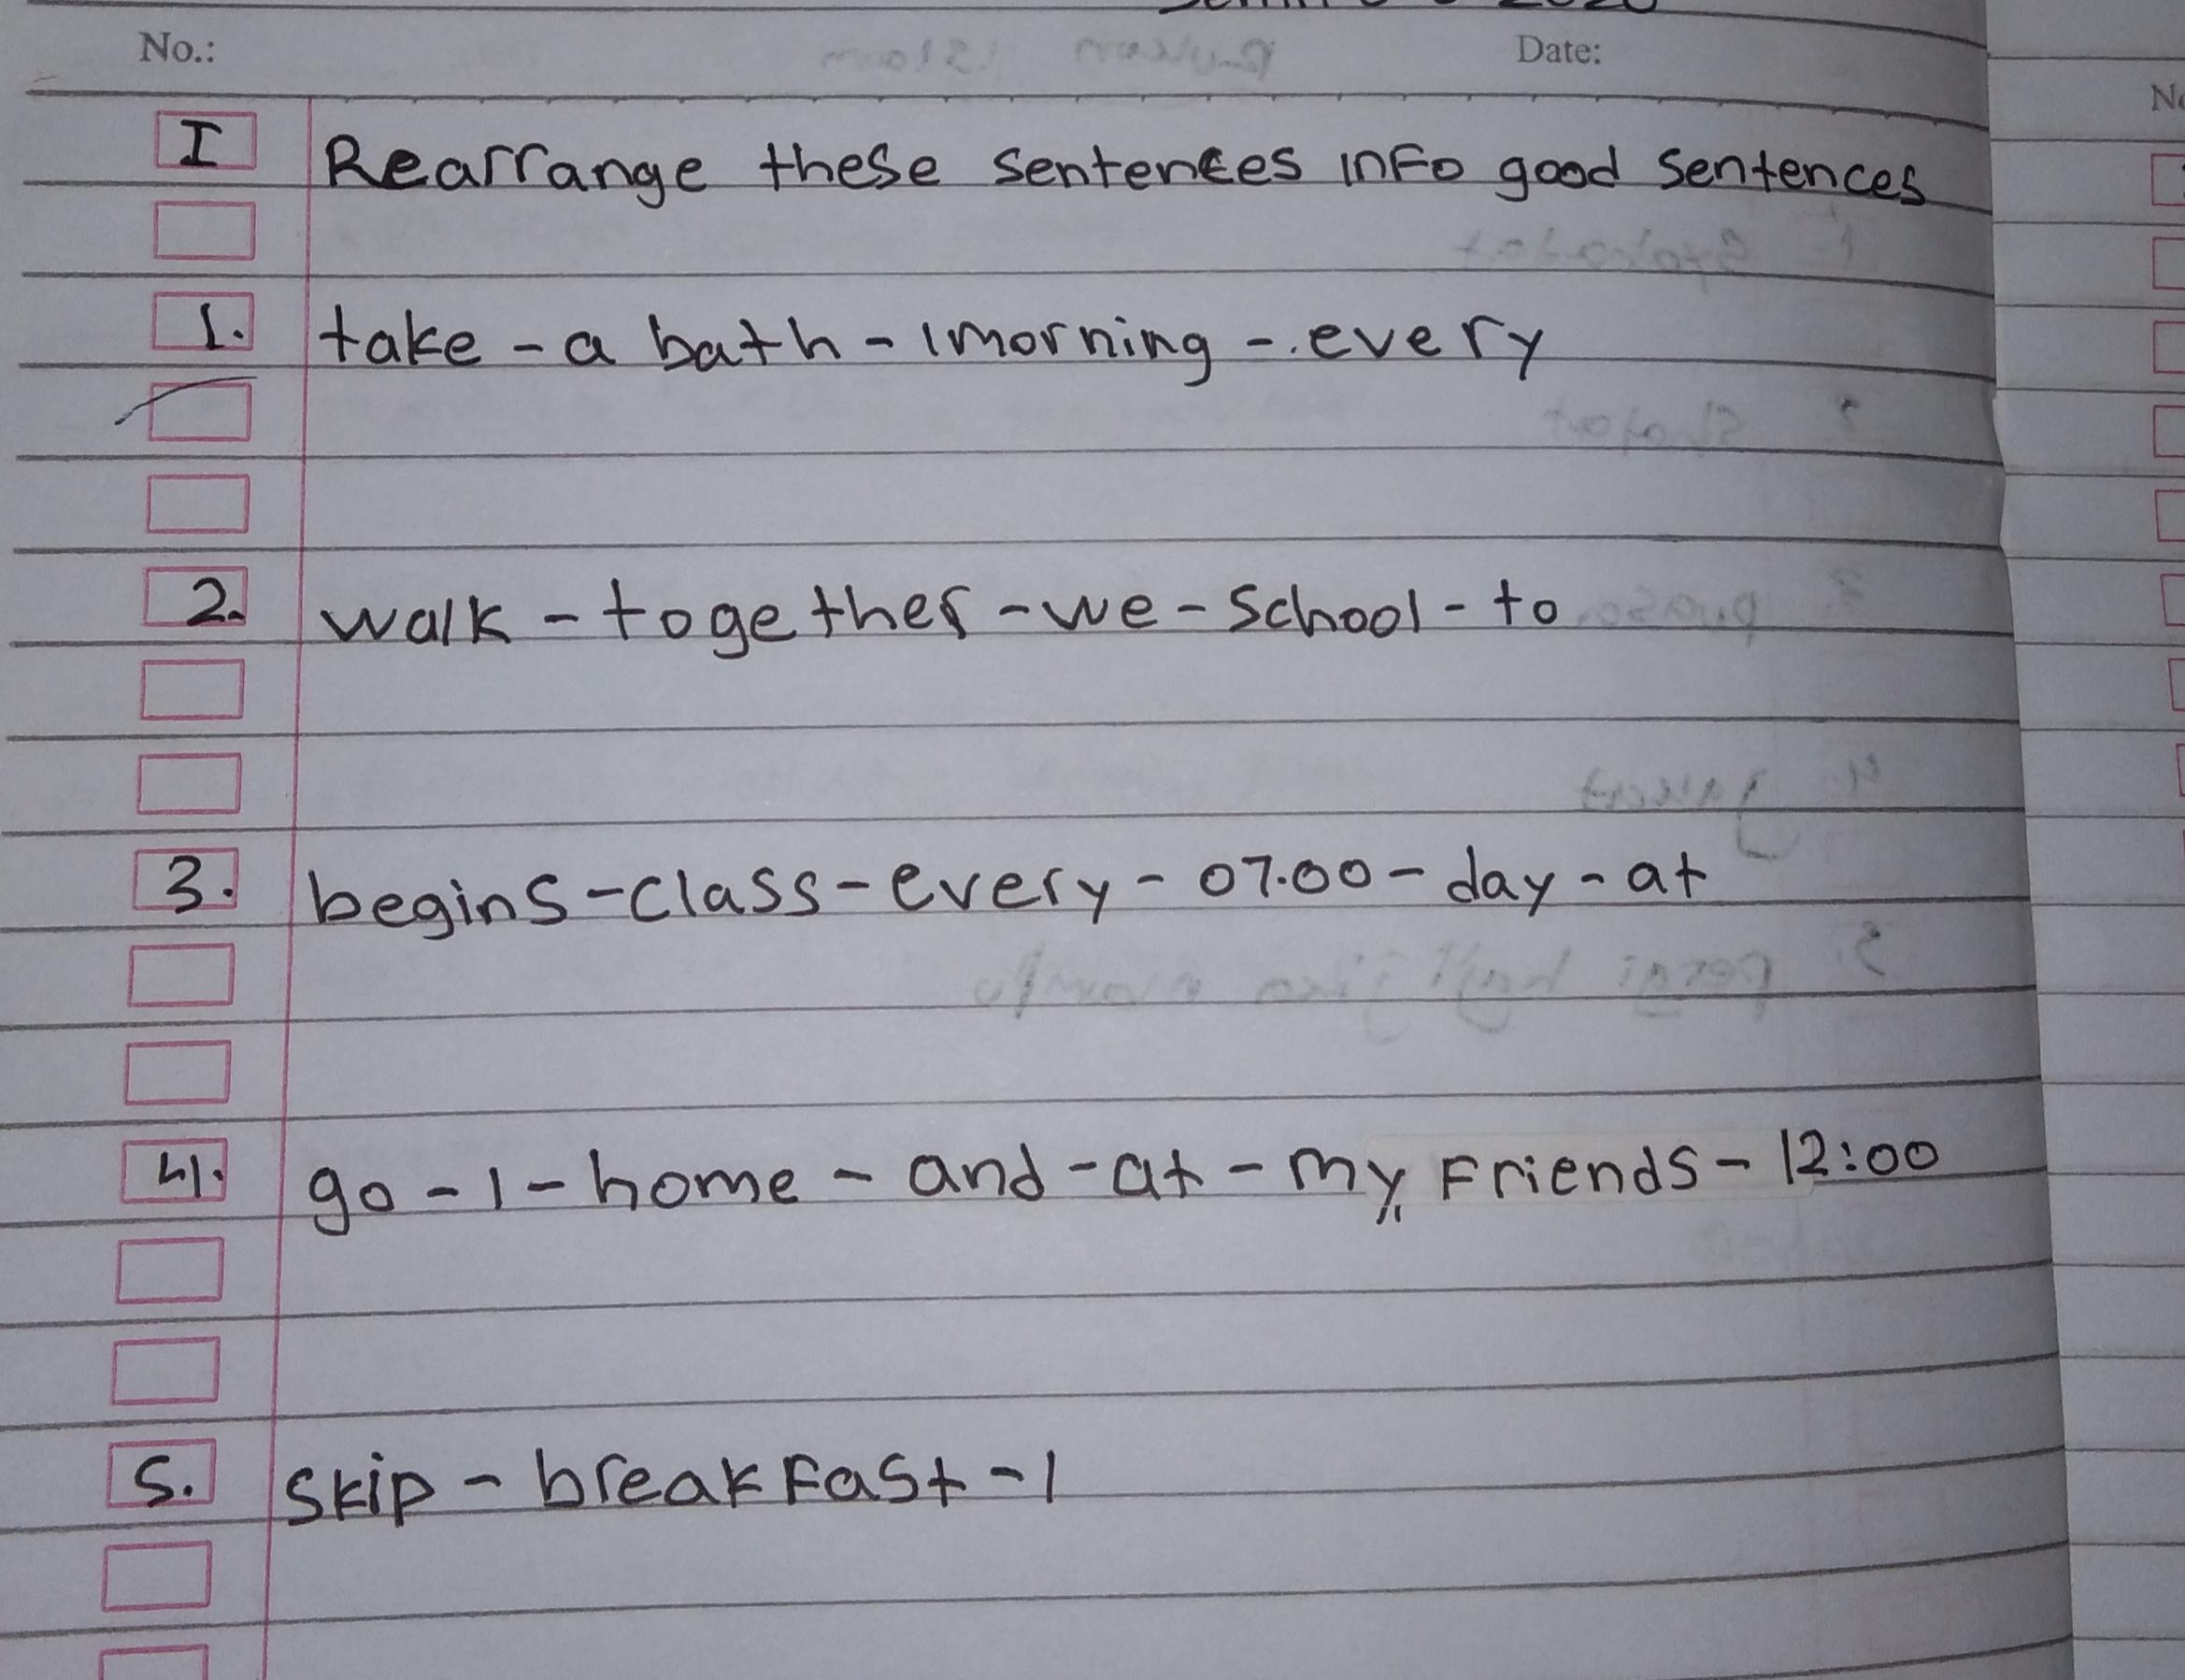 No.:
Date:
I Rearrange these sentences info good sentences
1. take - a bath - I morning - every
2. walk - together - we - school - to
3. begins - class - every - 07.00 - day - at
4. go - I - home - and - at - my friends - 12:00
5. skip - breakfast - I